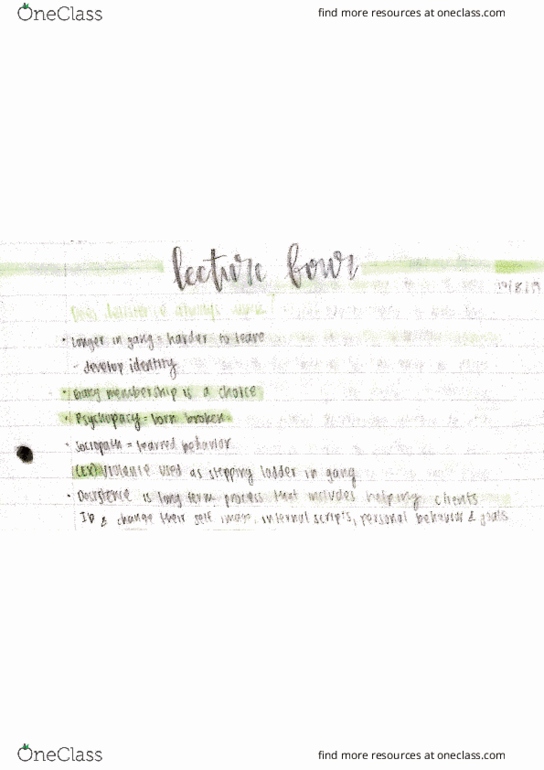 OneClass
find more resources at oneclass.com
lecture four
Does desistence always work
• Longer in gang = harder to leave
- develop identity
• Gang membership is a choice
• Psychopacy = born broken
• Sociopath = learned behavior
(EX) Violance used as stepping ladder in gang
• Desistence is long term process that includes helping clients
ID & change their self image, internal scripts, personal behavior & goals
OneClass
find more resources at oneclass.com